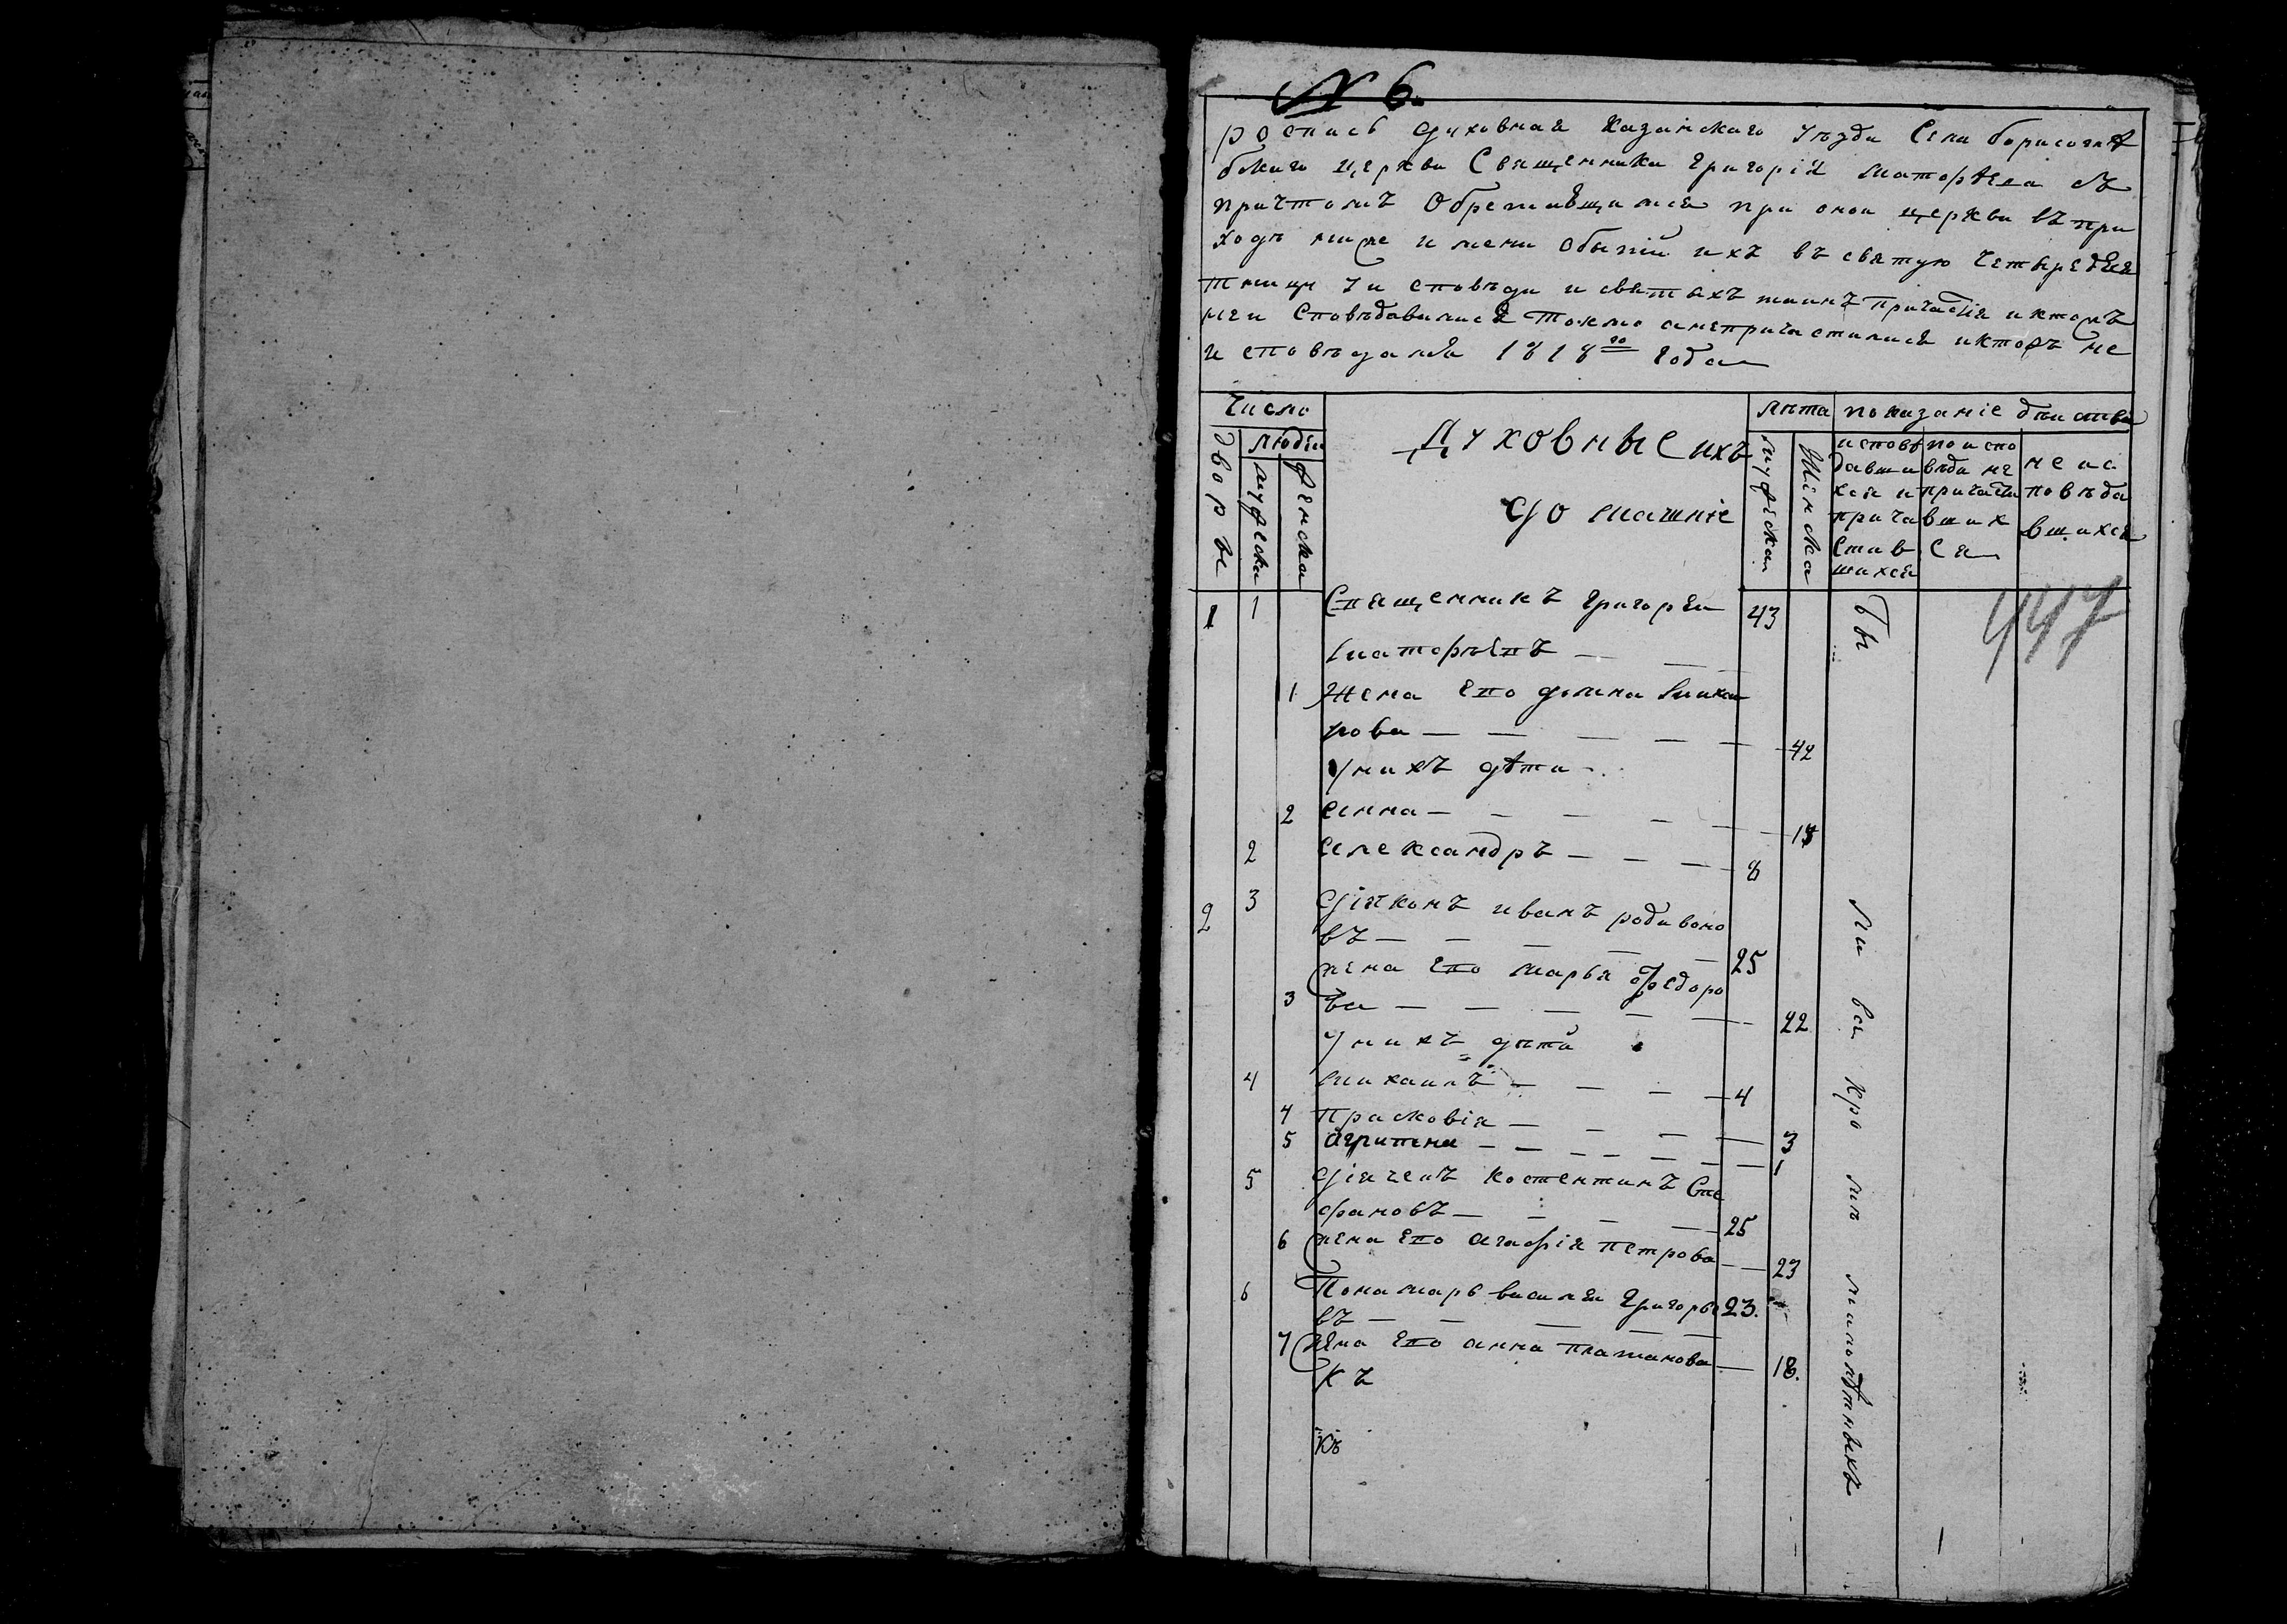 № 6.
роспись духовная Казанскаго уезда Села борисоглѣ
бскаго церкви Священника григорія матфѣева съ
причтомъ Обретающимся при онои церкви въ при
ходѣ ниже и мени Обытій ихъ въ святую четыредеся
тницу у и споведи и святыхъ таинъ причастія и ктожъ
неи сповѣдавшися токмо анепричастился иктожъ не
и сповѣдался 1818го Года
Число
лѣта показаніе дѣиства
дворы
людеи
мужеска
женска
Духовные ихъ
домашніе
мужеска
Женска
исповѣ
давши
хся и
прича
стив
шихся
по испо
вѣди не
причасти
вших
ся
не ис
повѣда
вшихся
1 1 Священникъ григореи 43
матфѣевъ — —
447
1 Жена его
рова — — — — — 42
Унихъ дѣти
2 анна — — — — —
2 александръ — — — 8
2 3 діяконъ иванъ родивоно
въ — — — — — 25
жена его марья Федоро
3 ва — — — — — 22
Унихъ дѣти
4 михаилъ — — — 4
4 Прасковія — — — — 3
5 агрипена — — — — — — 1
5 діячекъ костентинъ Сте
фановъ — — — — 25
6 жена его агафія петрова — — 23
6 Пономарь василеи григорье 23.
въ — — — —
7 жена его анна платанова — 18.
къ
къ
Бы
ли
вси
кро
мѣ
малолѣтныхъ